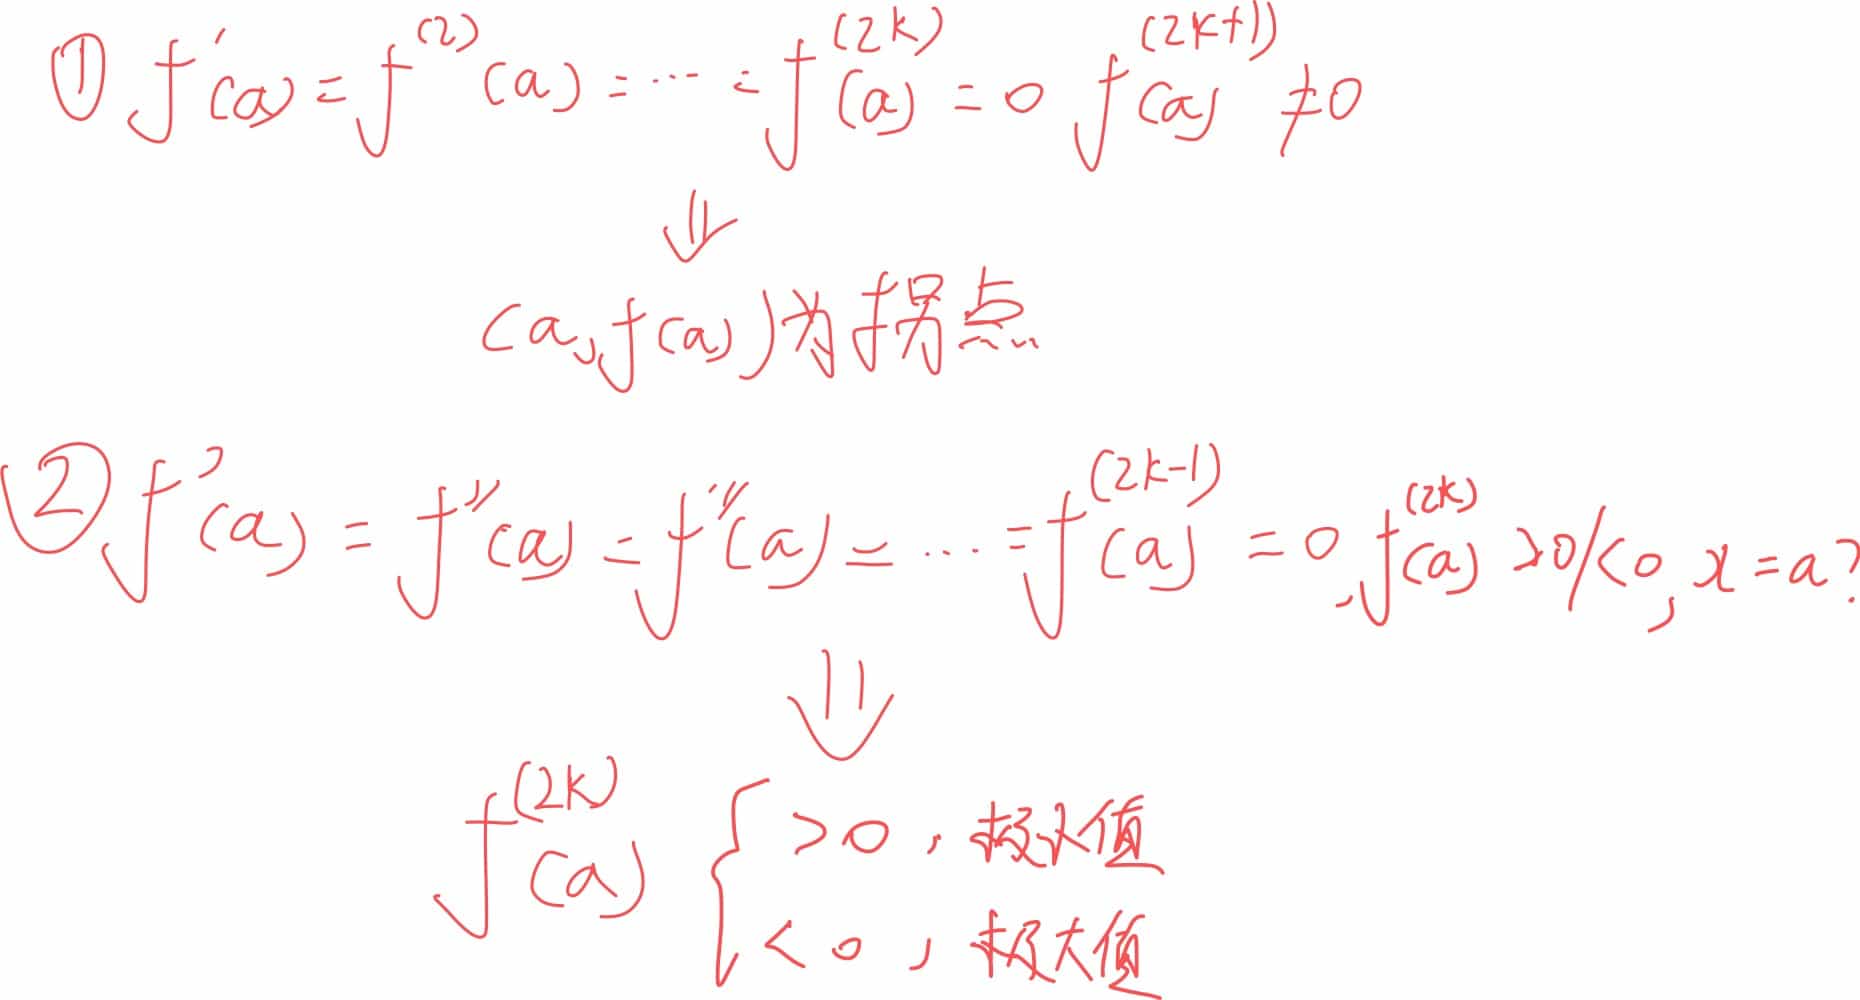 ① f'(a)=f^(2)(a)=⋯=f^(2k)(a)=0 f^(2k+1)(a)≠0
⇓
(a,f(a))为拐点
② f'(a)=f''(a)=f'''(a)=⋯=f^(2k-1)(a)=0,f^(2k)(a)>0/<0,x=a?
⇓
f^(2k)(a) { >0,极小值
<0,极大值